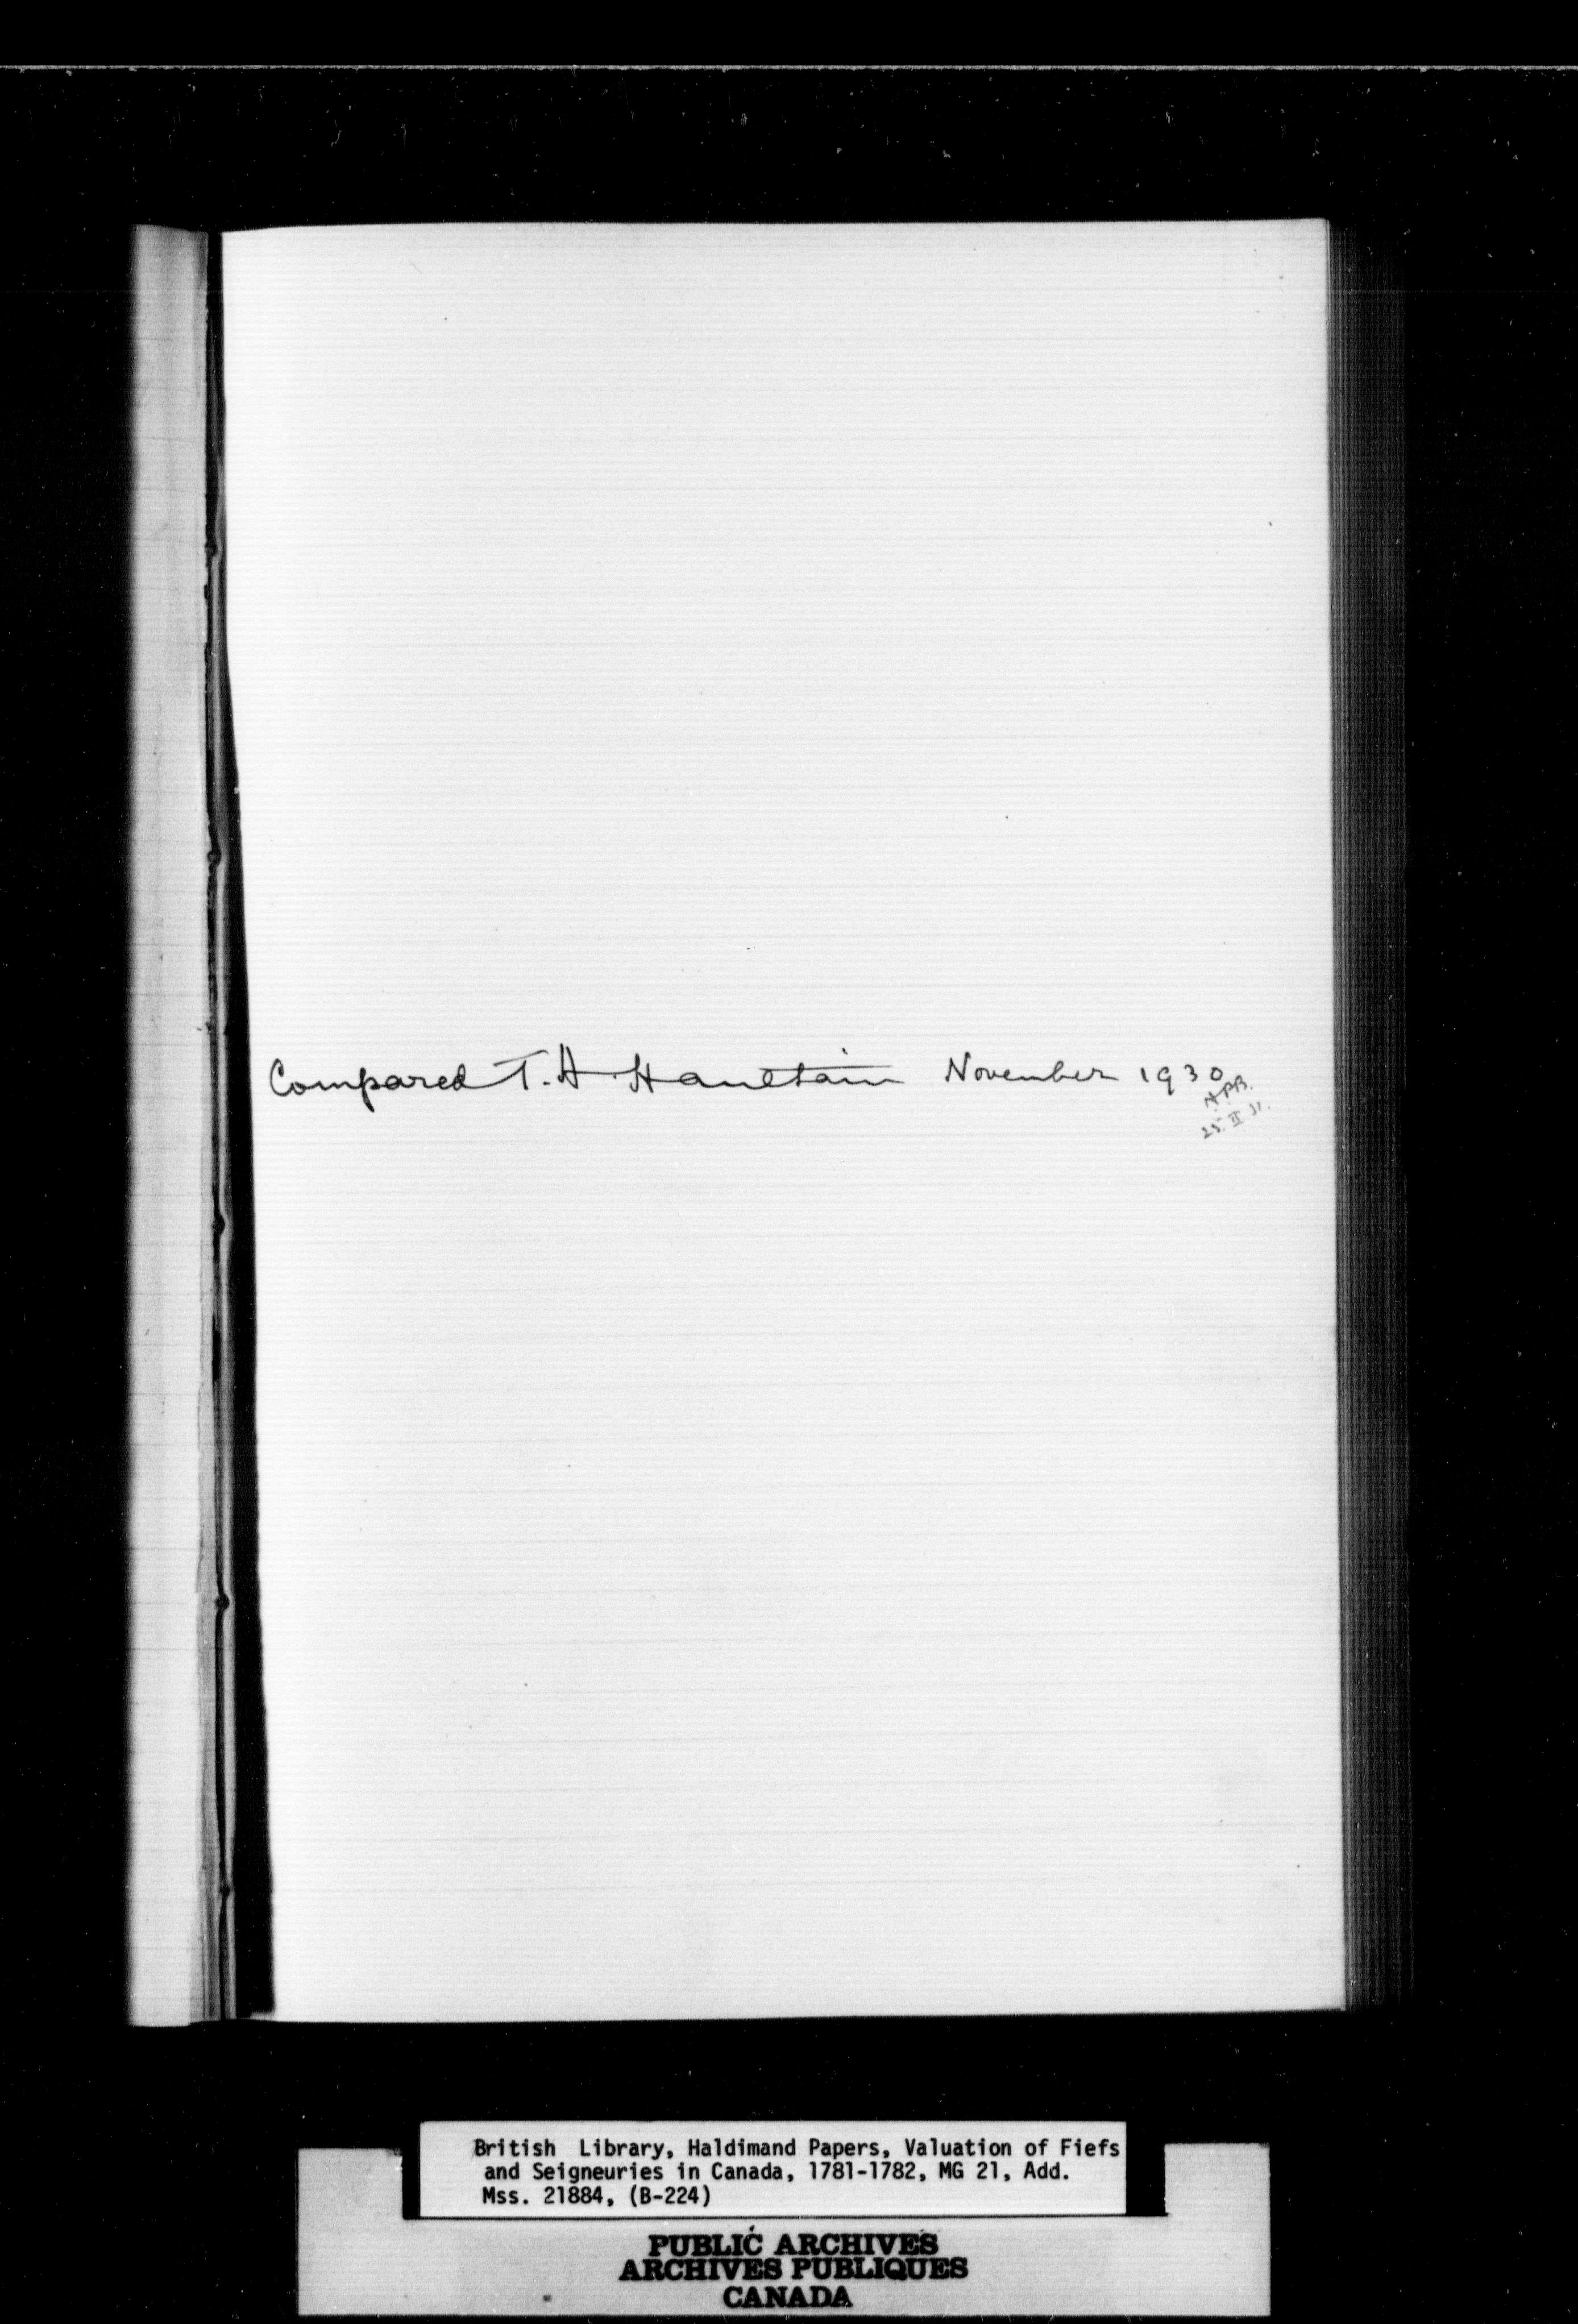 Compared T. H. Haultain November 1930
H.P.B.
25. II 31.
British Library, Haldimand Papers, Valuation of Fiefs
and Seigneuries in Canada, 1781-1782, MG 21, Add.
Mss. 21884, (B-224)
PUBLIC ARCHIVES
ARCHIVES PUBLIQUES
CANADA